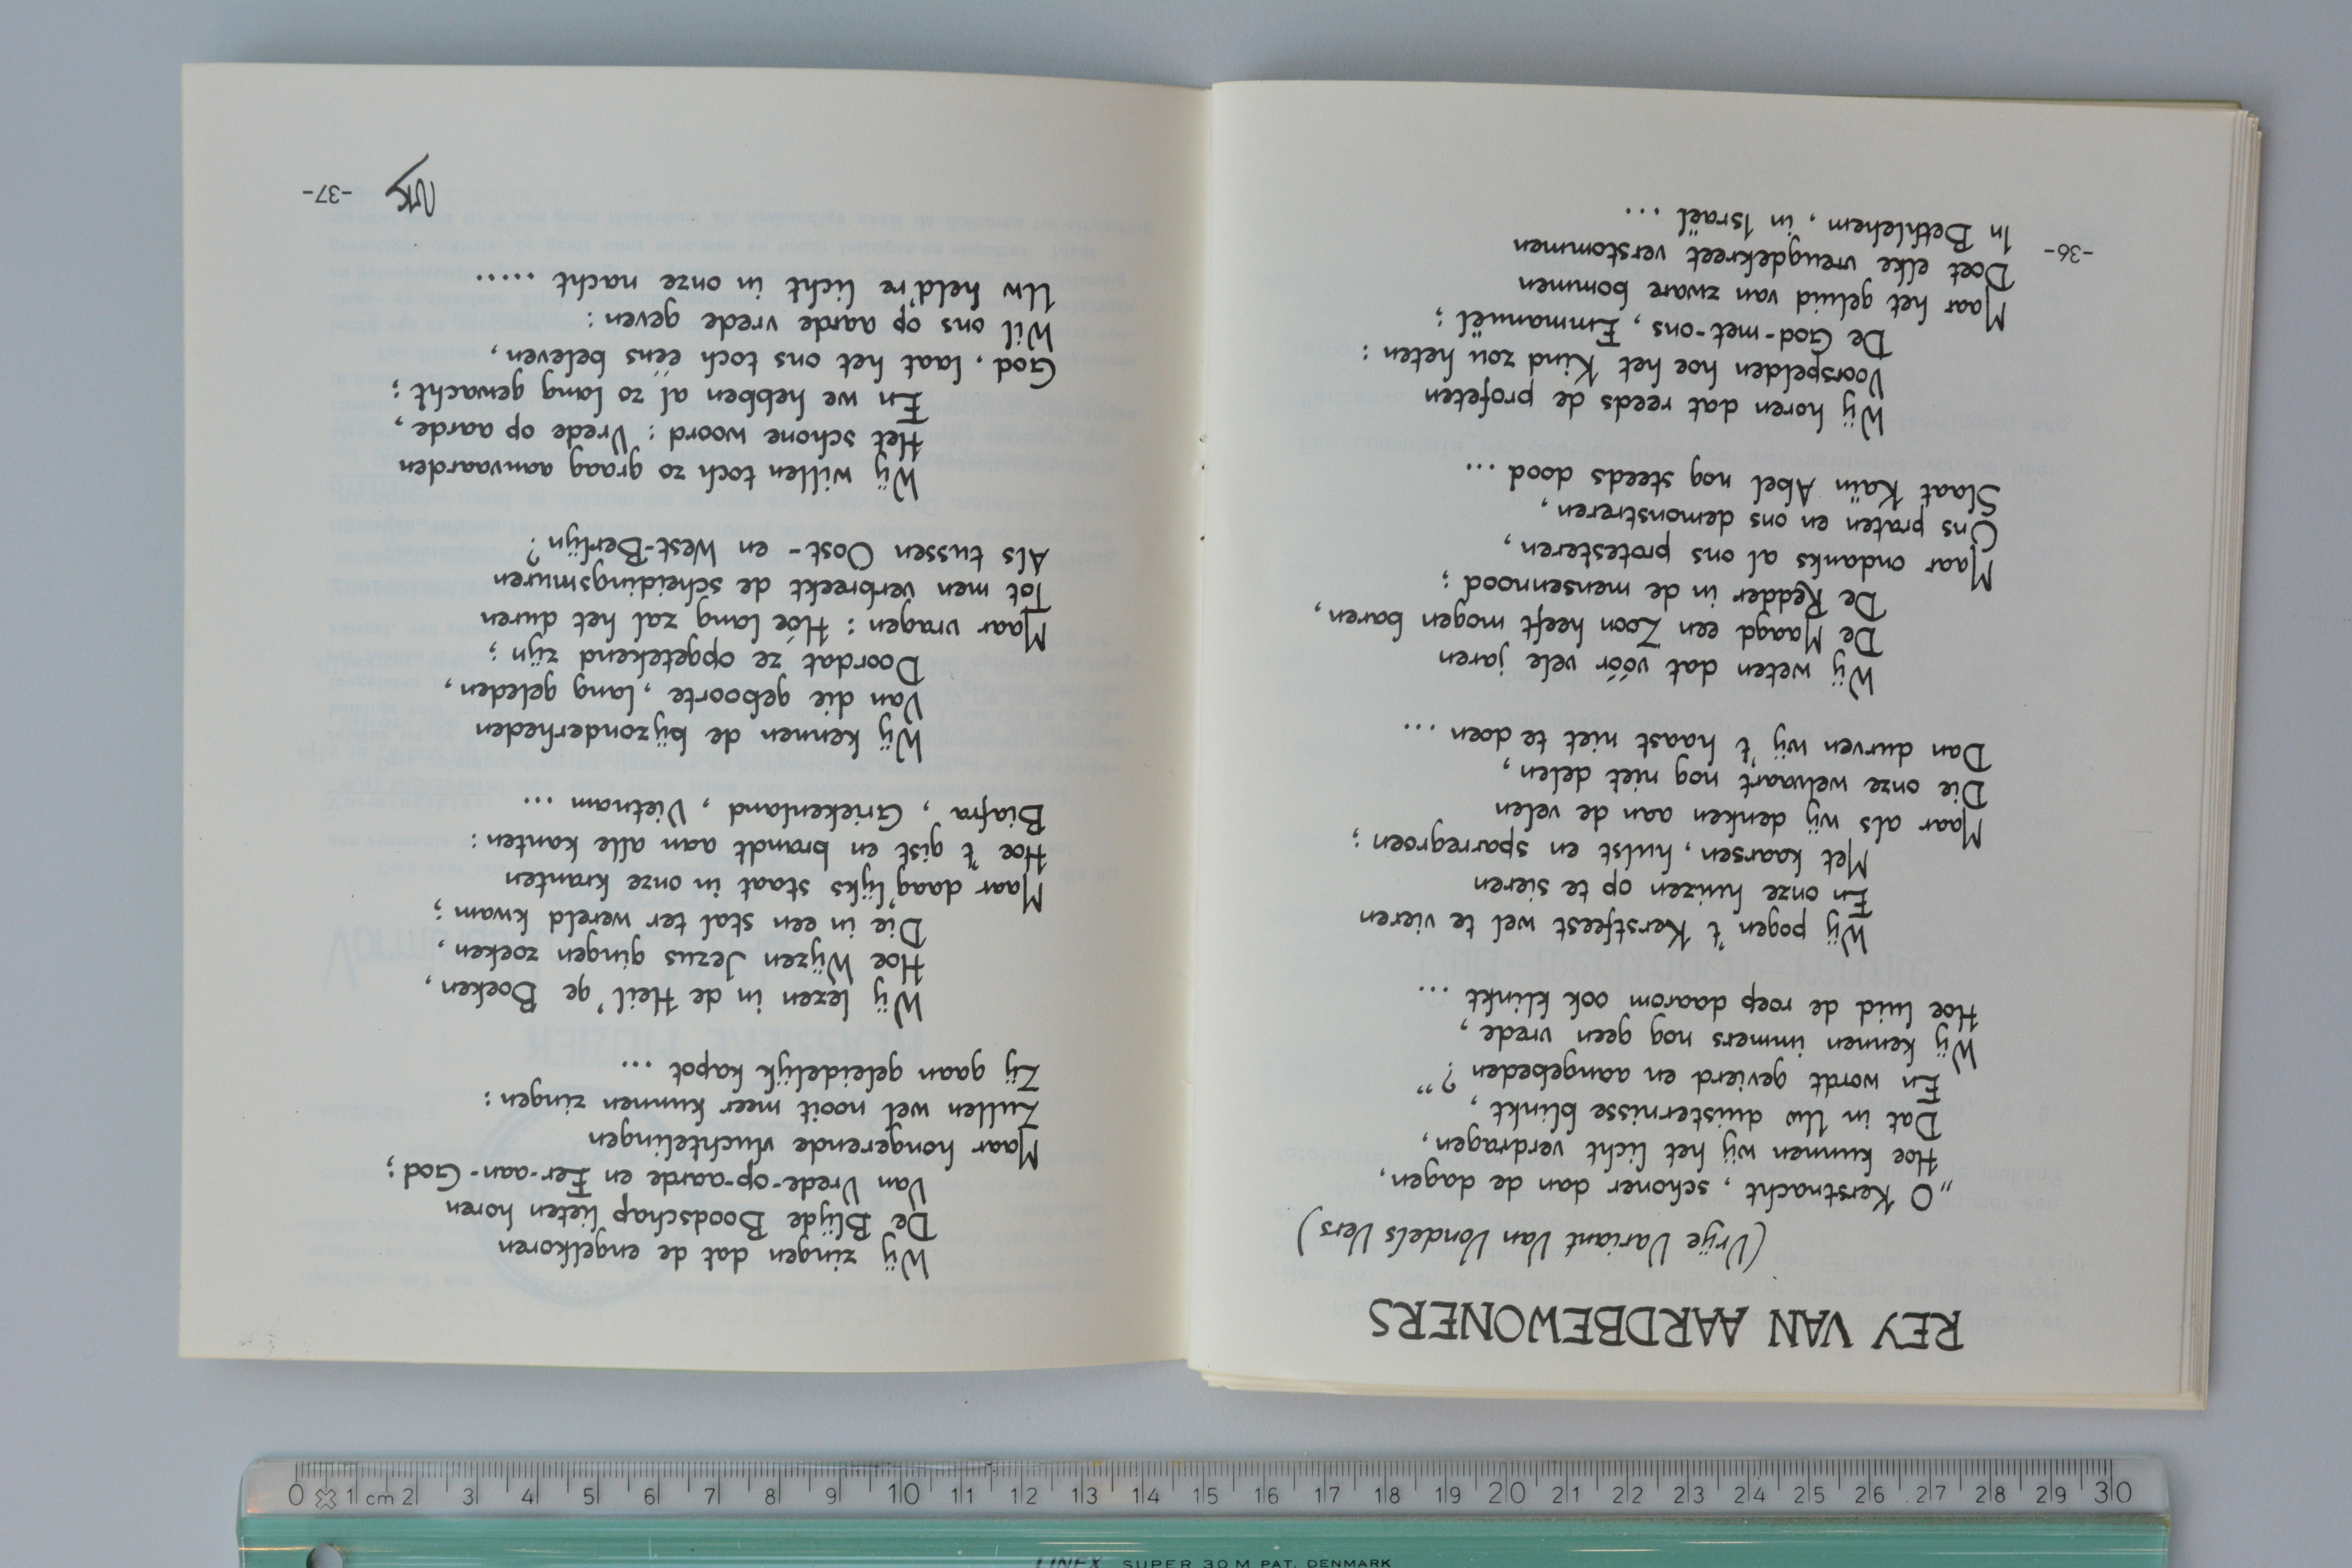 REY VAN AARDBEWONERS
(Vrije Variant Van Vondels Vers)
„O Kerstnacht, schoner dan de dagen,
Hoe kunnen wij het licht verdragen,
Dat in Uw duisternisse blinkt,
En wordt gevierd en aangebeden?”
Wij kennen immers nog geen vrede,
Hoe luid de roep daarom ook klinkt ...
Wij pogen 't Kerstfeest wel te vieren
En onze huizen op te sieren
Met kaarsen, hulst en sparregroen;
Maar als wij denken aan de velen
Die onze welvaart nog niet delen,
Dan durven wij 't haast niet te doen ...
Wij weten dat vóór vele jaren
De Maagd een Zoon heeft mogen baren,
De Redder in de mensennood;
Maar ondanks al ons protesteren,
Ons praten en ons demonstreren,
Slaat Kaïn Abel nog steeds dood ...
Wij horen dat reeds de profeten
Voorspelden hoe het Kind zou heten:
De God-met-ons, Emmanuël;
Maar het geluid van zware bommen
Doet elke vreugdekreet verstommen
In Bethlehem, in Israël ...
-36-
Wij zingen dat de engelkoren
De Blijde Boodschap lieten horen
Van Vrede-op-aarde en Eer-aan-God;
Maar hongerende vluchtelingen
Zullen wel nooit meer kunnen zingen:
Zij gaan geleidelijk kapot ...
Wij lezen in de Heil'ge Boeken,
Hoe Wijzen Jezus gingen zoeken,
Die in een stal ter wereld kwam;
Maar daag'lijks staat in onze kranten
Hoe 't gist en brandt aan alle kanten:
Biafra, Griekenland, Vietnam ...
Wij kennen de bijzonderheden
Van die geboorte, lang geleden,
Doordat ze opgetekend zijn;
Maar vragen: Hóe lang zal het duren
Tot men verbreekt de scheidingsmuren
Als tussen Oost- en West-Berlijn?
Wij willen toch zo graag aanvaarden
Het schone woord: Vrede op aarde,
En we hebben al zo lang gewacht;
God, laat het ons toch ééns beleven,
Wil ons op aarde vrede geven:
Uw held're licht in onze nacht .....
-37-
0 1 cm 2 3 4 5 6 7 8 9 10 11 12 13 14 15 16 17 18 19 20 21 22 23 24 25 26 27 28 29 30
LINEX SUPER 30 M PAT. DENMARK